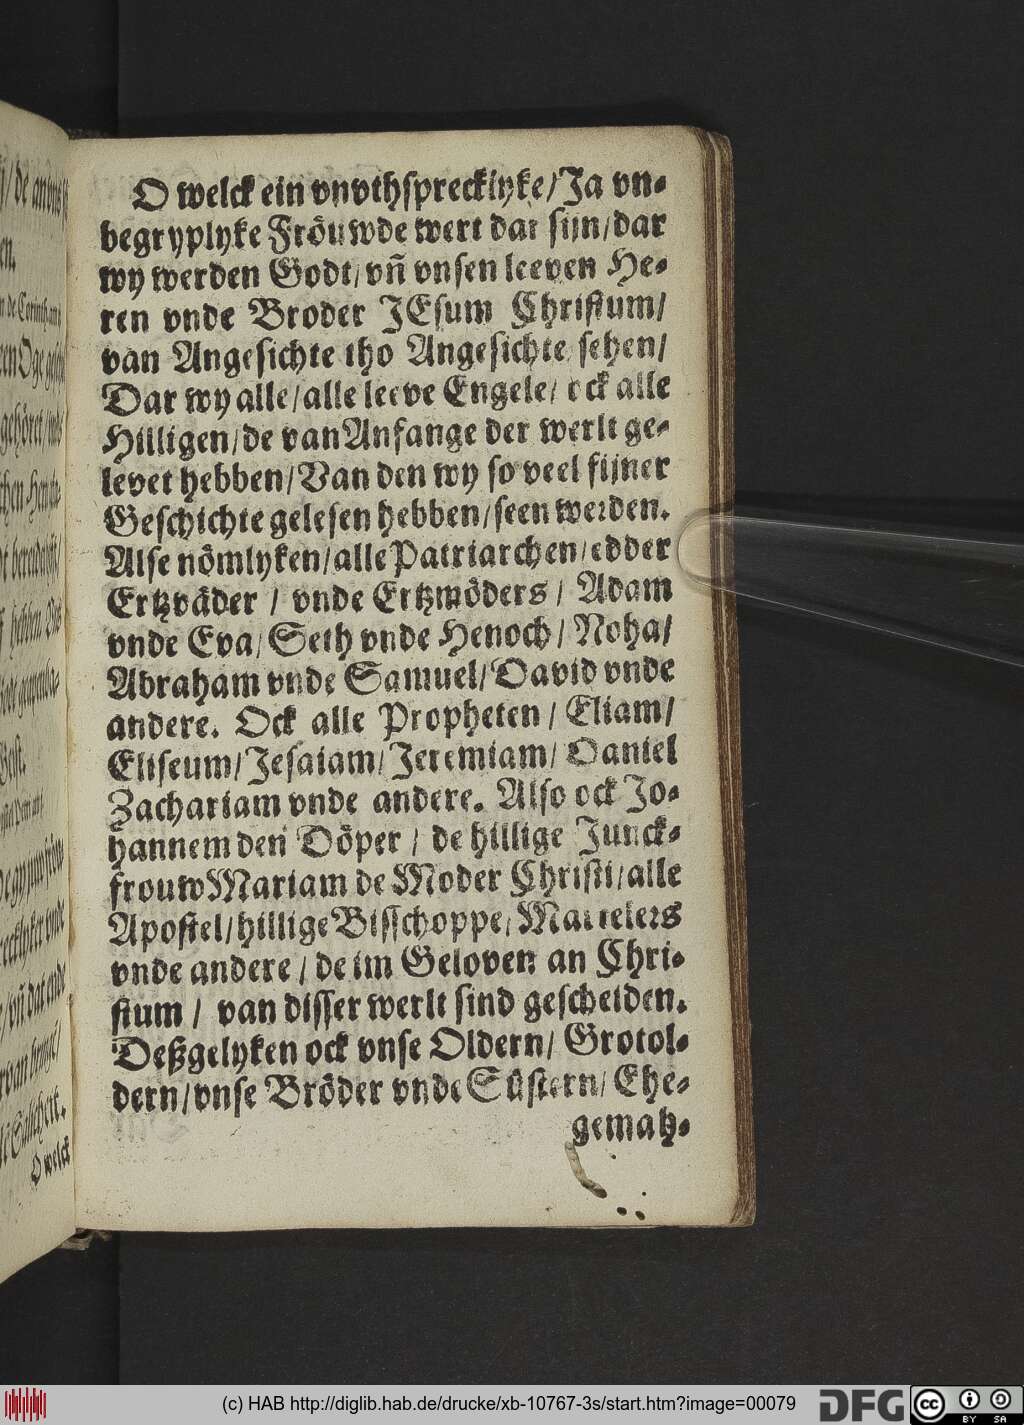 O welck ein vnvthsprecklyke/Ja vn-
begryplyke Fröuwde wert dar sijn/dar
wy werden Godt/vñ vnsen leeven He-
ren vnde Broder JEsum Christum/
van Angesichte tho Angesichte sehen/
Dar wy alle/alle leeve Engele/ ock alle
Hilligen/de van Anfange der werlt ge-
levet hebben/Van den wy so veel fijner
Geschichte gelesen hebben/seen werden.
Alse nömlyken/alle Patriarchen/edder
Ertzväder / vnde Ertzmöders / Adam
vnde Eva/ Seth vnde Henoch/ Noha/
Abraham vnde Samuel/David vnde
andere. Ock alle Propheten / Eliam/
Eliseum/Jesaiam/Jeremiam/ Daniel
Zachariam vnde andere. Also ock Jo-
hannem den Döper / de hillige Junck-
frouw Mariam de Moder Christi/alle
Apostel/hillige Bisschoppe/Martelers
vnde andere / de im Geloven an Chri-
stum / van disser werlt sind gescheiden.
Deßgelyken ock vnse Oldern/ Grotol-
dern/vnse Bröder vnde Süstern/ Ehe-
gemah-
O welck
(c) HAB http://diglib.hab.de/drucke/xb-10767-3s/start.htm?image=00079
DFG
cc
BY SA